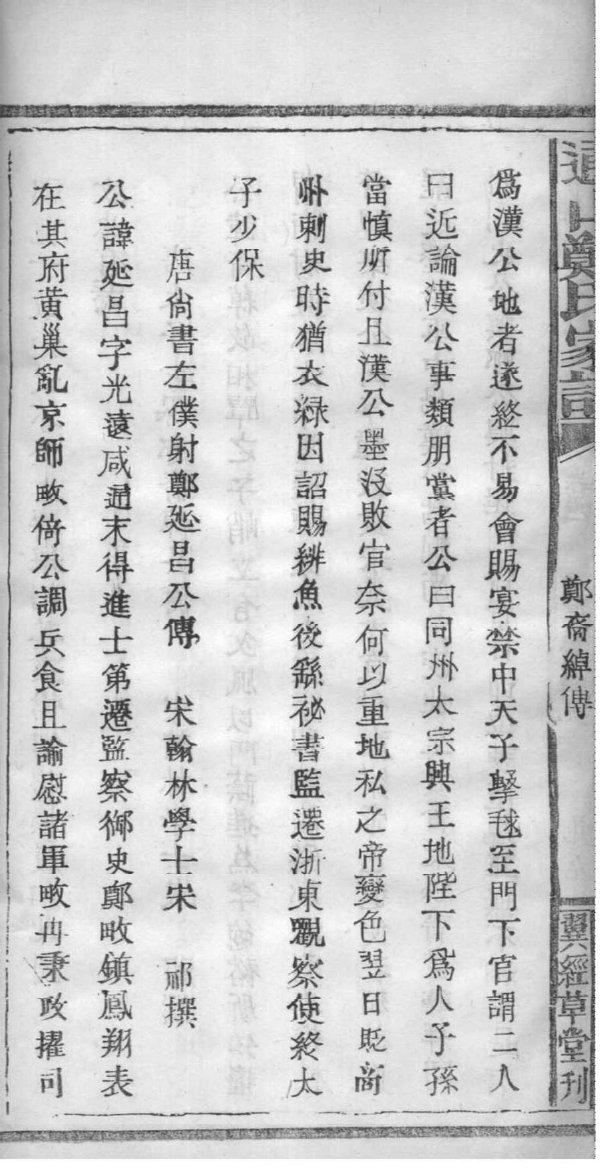 通山鄭氏家譜
鄭裔綽傳
翼經草堂刊
爲漢公地者遂終不易會賜宴禁中天子擊毬至門下官謂二人
曰近論漢公事類朋黨者公曰同州太宗興王地陛下爲人子孫
當慎所付且漢公墨沒敗官奈何以重地私之帝變色翌日貶商
州刺史時猶衣綠因詔賜緋魚後繇祕書監遷浙東觀察使終太
子少保
唐尙書左僕射鄭延昌公傳 宋翰林學士宋 祁撰
公諱延昌字光遠咸通末得進士第遷監察御史鄭畋鎮鳳翔表
在其府黃巢亂京師畋倚公調兵食且諭慰諸軍畋再秉政擢司